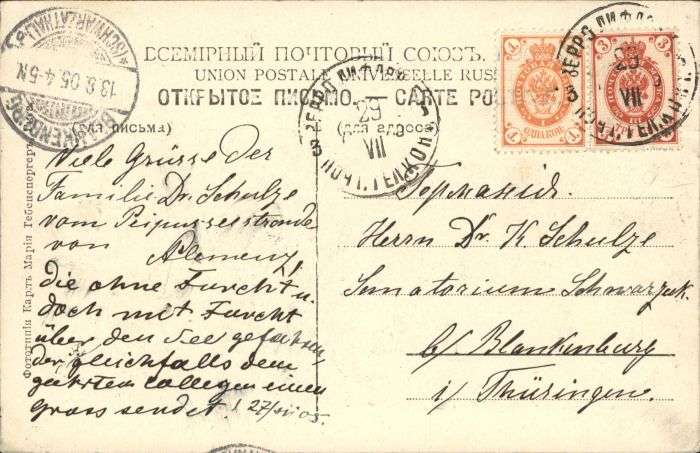 ВСЕМІРНЫЙ ПОЧТОВЫЙ СОЮЗЪ.
UNION POSTALE UNIVERSELLE RUS
ОТКРЫТОЕ ПИСЬМО. — CARTE PO
(для письма)
(для адреса)
13.8.05.4-5N
(SCHWARZATHAL)
29
VII
29
VII
1
3
Viele Grüsse der
Familie Dr. Schulze
vom Peipusseestrande
von
die ohne Furcht u.
doch mit Furcht
über den See gefahren,
der gleichfalls dem
geehrtem Collegen einen
Gruss sendet 27/VII 05.
Германія.
Herrn Dr. K Schulze
Sanatorium Schwarzek
b/ Blankenburg
i/ Thüringen.
Фототипія Карлъ Марія Гебенспергеръ